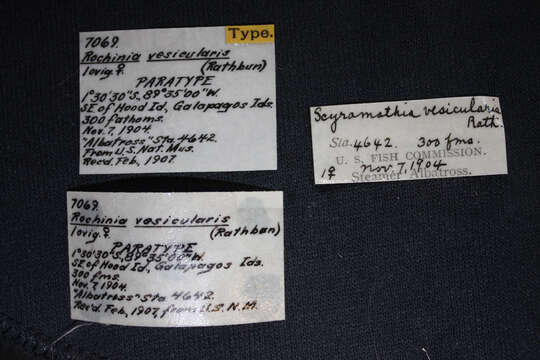 7069.
Type.
Rochinia vesicularis
1 ovig. ♀ (Rathbun)
PARATYPE
1°30'30"S, 89°35'00"W.
SE of Hood Id., Galapagos Ids.
300 fathoms.
Nov. 7, 1904.
"Albatross" Sta. 4642.
From U.S. Nat. Mus.
Rec'd. Feb., 1907.
7069.
Rochinia vesicularis
1 ovig. ♀ (Rathbun)
PARATYPE
1°30'30"S, 89°35'00"W.
SE of Hood Id., Galapagos Ids.
300 fms.
Nov. 7, 1904.
"Albatross" Sta. 4642.
Rec'd. Feb., 1907, from U.S.N.M.
Scyramathia vesicularis
Rath.
Sta. 4642. 300 fms.
U. S. FISH COMMISSION.
1♀ Nov. 7, 1904
Steamer Albatross.